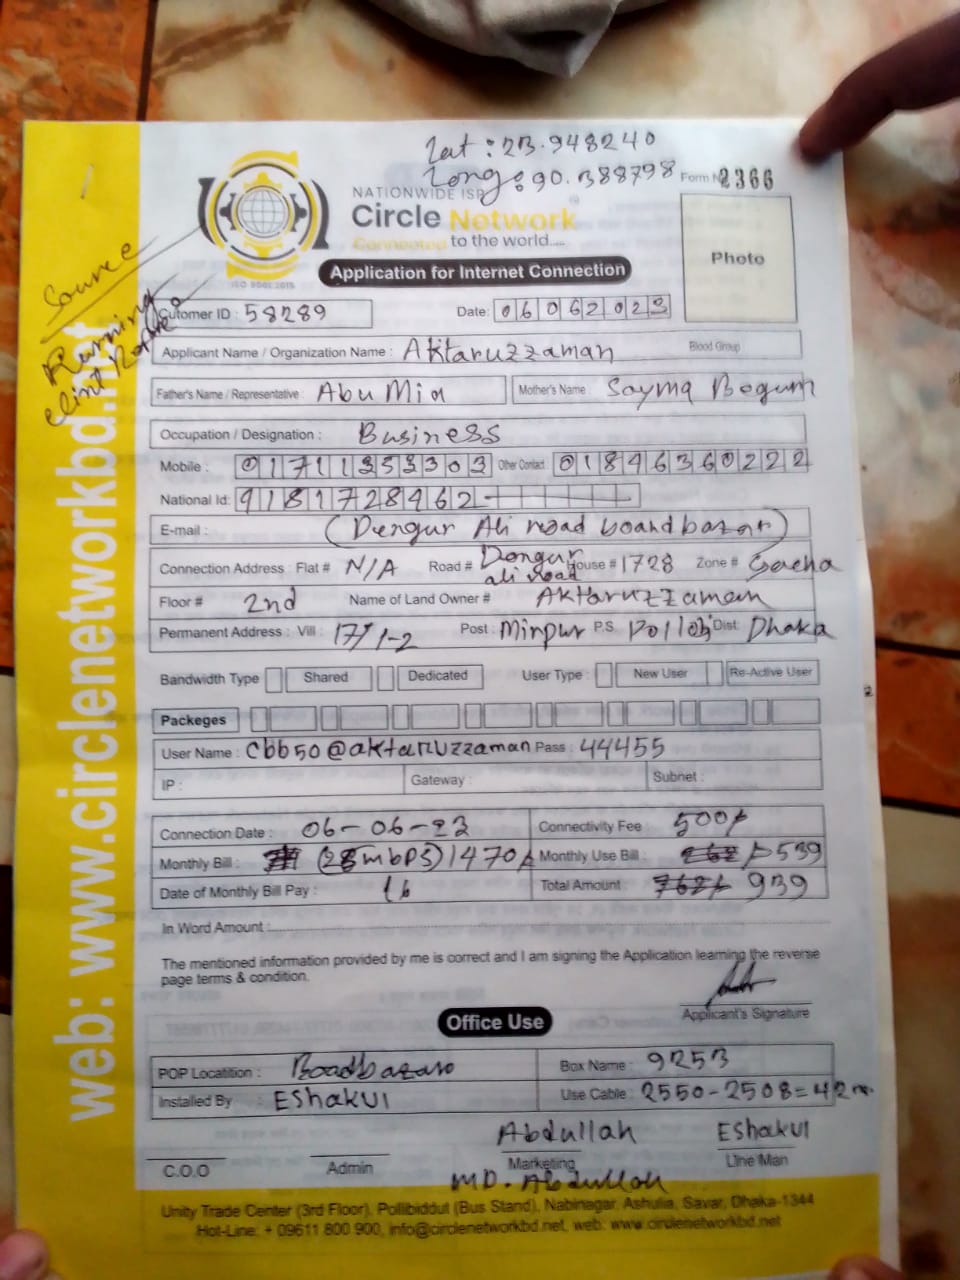 Lat : 23.948240
Long : 90.388798
Form N 2366
NATIONWIDE ISP
Circle Network
Connected to the world.....
ISO 9001:2015
Photo
Application for Internet Connection
Source
Running
clint
web: www.circlenetworkbd.net
Cutomer ID : 58289 Date: 06062023
Applicant Name / Organization Name : Aktaruzzaman Blood Group
Father's Name / Representative : Abu Mia Mother's Name : Sayma Begum
Occupation / Designation : Business
Mobile : 01711353303 Other Contact 01846360222
National Id: 9181728462
E-mail : (Dengur Ali road boardbazar)
Connection Address : Flat # N/A Road # Dengur ali road House # 1728 Zone # Gacha
Floor # 2nd Name of Land Owner # Aktaruzzaman
Permanent Address : Vill : 17/1-2 Post : Mirpur P.S. Pollobi Dist: Dhaka
Bandwidth Type Shared Dedicated User Type : New User Re-Active User
Packeges
User Name : cbb50@aktaruzzaman Pass : 44455
IP : Gateway : Subnet :
Connection Date : 06-06-23 Connectivity Fee 500/-
Monthly Bill : (28mbps) 1470/- Monthly Use Bill : 539
Date of Monthly Bill Pay : 16 Total Amount : 939
In Word Amount :
The mentioned information provided by me is correct and I am signing the Application learning the reverse
page terms & condition.
Applicant's Signature
Office Use
POP Locatition : Boardbazar Box Name : 9253
Installed By : Eshakul Use Cable : 2550-2508=42m
Abdullah Eshakul
C.O.O Admin Marketing Line Man
MD. Abdullah
Unity Trade Center (3rd Floor), Pollibiddut (Bus Stand), Nabinagar, Ashulia, Savar, Dhaka-1344
Hot-Line: + 09611 800 900, info@circlenetworkbd.net, web: www.circlenetworkbd.net